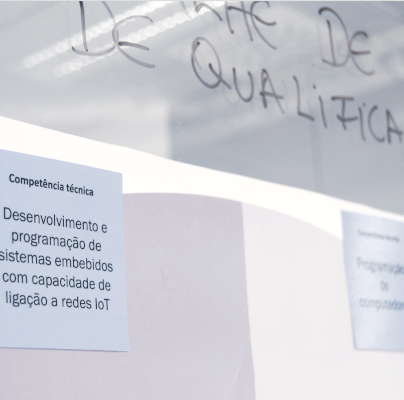 DE DE
QUALIFICA
Competência técnica
Desenvolvimento e
programação de
sistemas embebidos
com capacidade de
ligação a redes IoT
Competência técnica
Programação
de
computadores